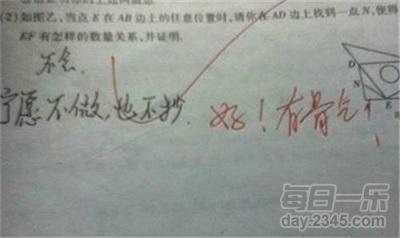 (2)如图乙,当点 E 在 AB 边上的任意位置时,请你在 AD 边上找到一点 N,使得
EF 有怎样的数量关系,并证明.
不会.
宁愿不做,也不抄.
好!有骨气!
D
N
A
E
每日一乐
day.2345.com